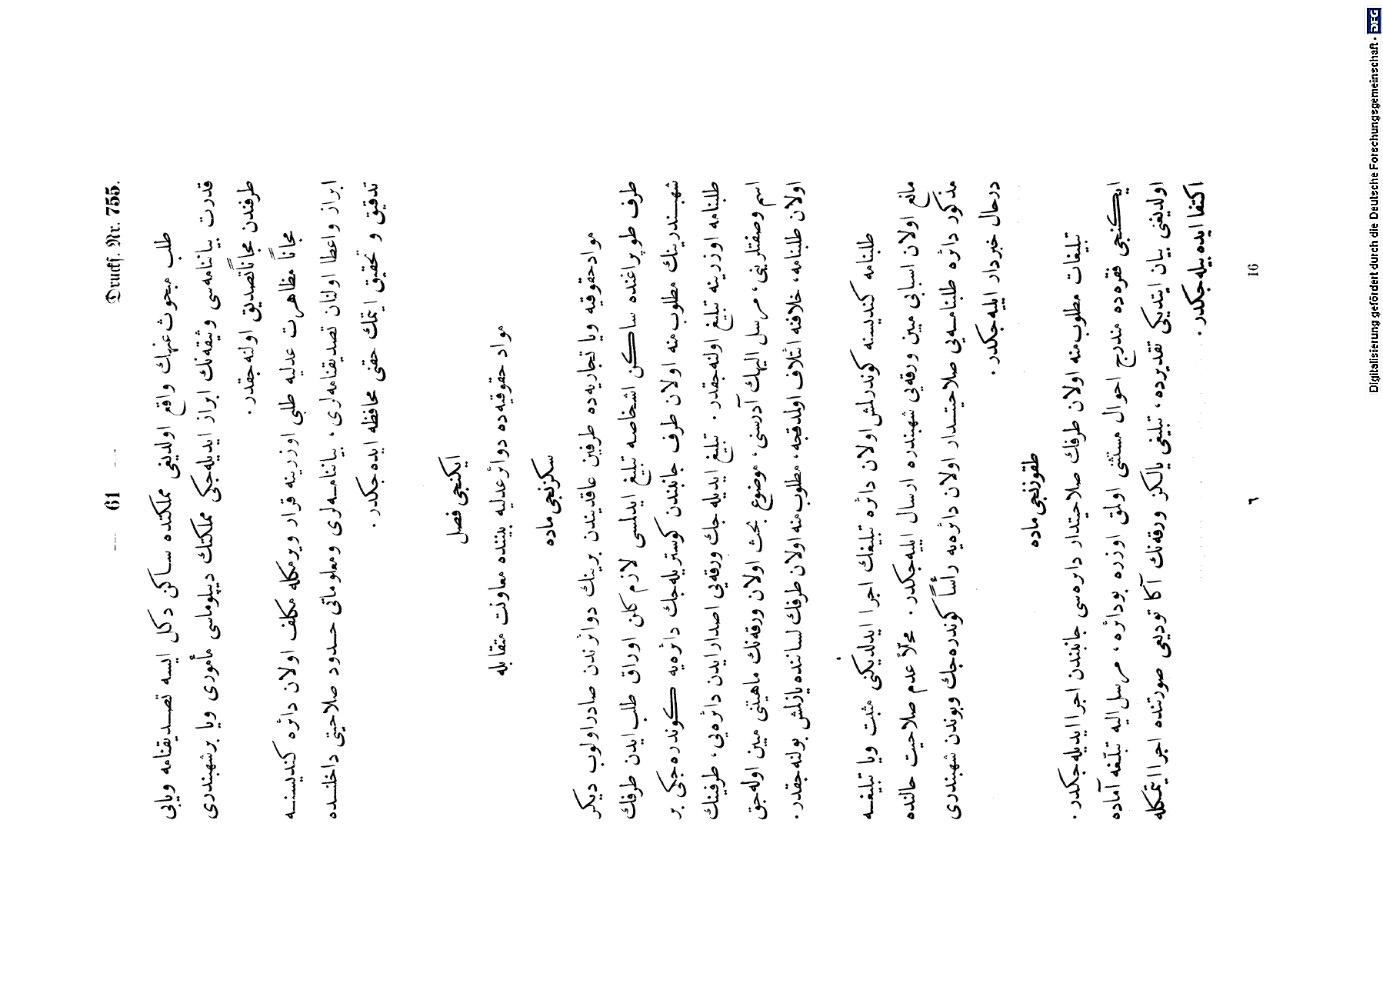 — 61 —
Drucks. Nr. 755.
طلب مبحوث عنهك واقع اولديغى مملكتده ساكن دكل ايسه تصديقنامه ويا
قدرت بياننامه سى وثيقه نك ابراز ايديله جكى مملكتك ديپلوماسى مأمورى ويا بر شهبندرى
طرفندن مجاناً تصديق اولنه جقدر.
مجاناً مظاهرت عدليه طلبى اوزرينه قرار ويرمكله مكلف اولان دائره كنديسنه
ابراز واعطا اولنان تصديقنامه لرى، بياننامه لرى ومعلوماتى حدود صلاحيتى داخلنده
تدقيق و تحقيق ايتمك حقنى محافظه ايده جكدر.
ايكنجى فصل
مواد حقوقيه ده دوائر عدليه بيننده معاونت متقابله
سكزنجى ماده
مواد حقوقيه ويا تجاريه ده طرفين عاقديندن برينك دوائرندن صادر اولوب ديكر
طرف طوپراغنده ساكن اشخاصه تبليغ ايدلمسى لازم كلن اوراق طلب ايدن طرفك
شهبندرينك مطلوب منه اولان طرف جانبندن كوستريله جك دائره يه كوندره جكى بر
طلبنامه اوزرينه تبليغ اولنه جقدر. تبليغ ايديله جك ورقه يى اصدار ايدن دائره يى، طرفينك
اسم وصفتلرينى، مرسل اليهك آدرسنى، موضوع بحث اولان ورقه نك ماهيتنى مبين اوله جق
اولان طلبنامه، خلافنه ائتلاف اولمدقجه، مطلوب منه اولان طرفك لساننده يازلمش بولنه جقدر.
طلبنامه كنديسنه كوندرلمش اولان دائره تبليغك اجرا ايدلديكنى مثبت ويا تبليغه
مانع اولان اسبابى مبين ورقه يى شهبندره ارسال ايليه جكدر. محلاً عدم صلاحيت حالنده
مذكور دائره طلبنامه يى صلاحيتدار اولان دائره يه رأساً كوندره جك وبوندن شهبندرى
درحال خبردار ايليه جكدر.
طقوزنجى ماده
تبليغات مطلوب منه اولان طرفك صلاحيتدار دائره سى جانبندن اجرا ايديله جكدر.
ايكنجى فقره ده مندرج احوال مستثنى اولمق اوزره بو دائره، مرسل اليه تبلغه آماده
اولديغنى بيان ايتديكى تقديرده، تبليغى يالكز ورقه نك آكا توديعى صورتنده اجرا ايتمكله
اكتفا ايده بيله جكدر.
٦
16
Digitalisierung gefördert durch die Deutsche Forschungsgemeinschaft - DFG